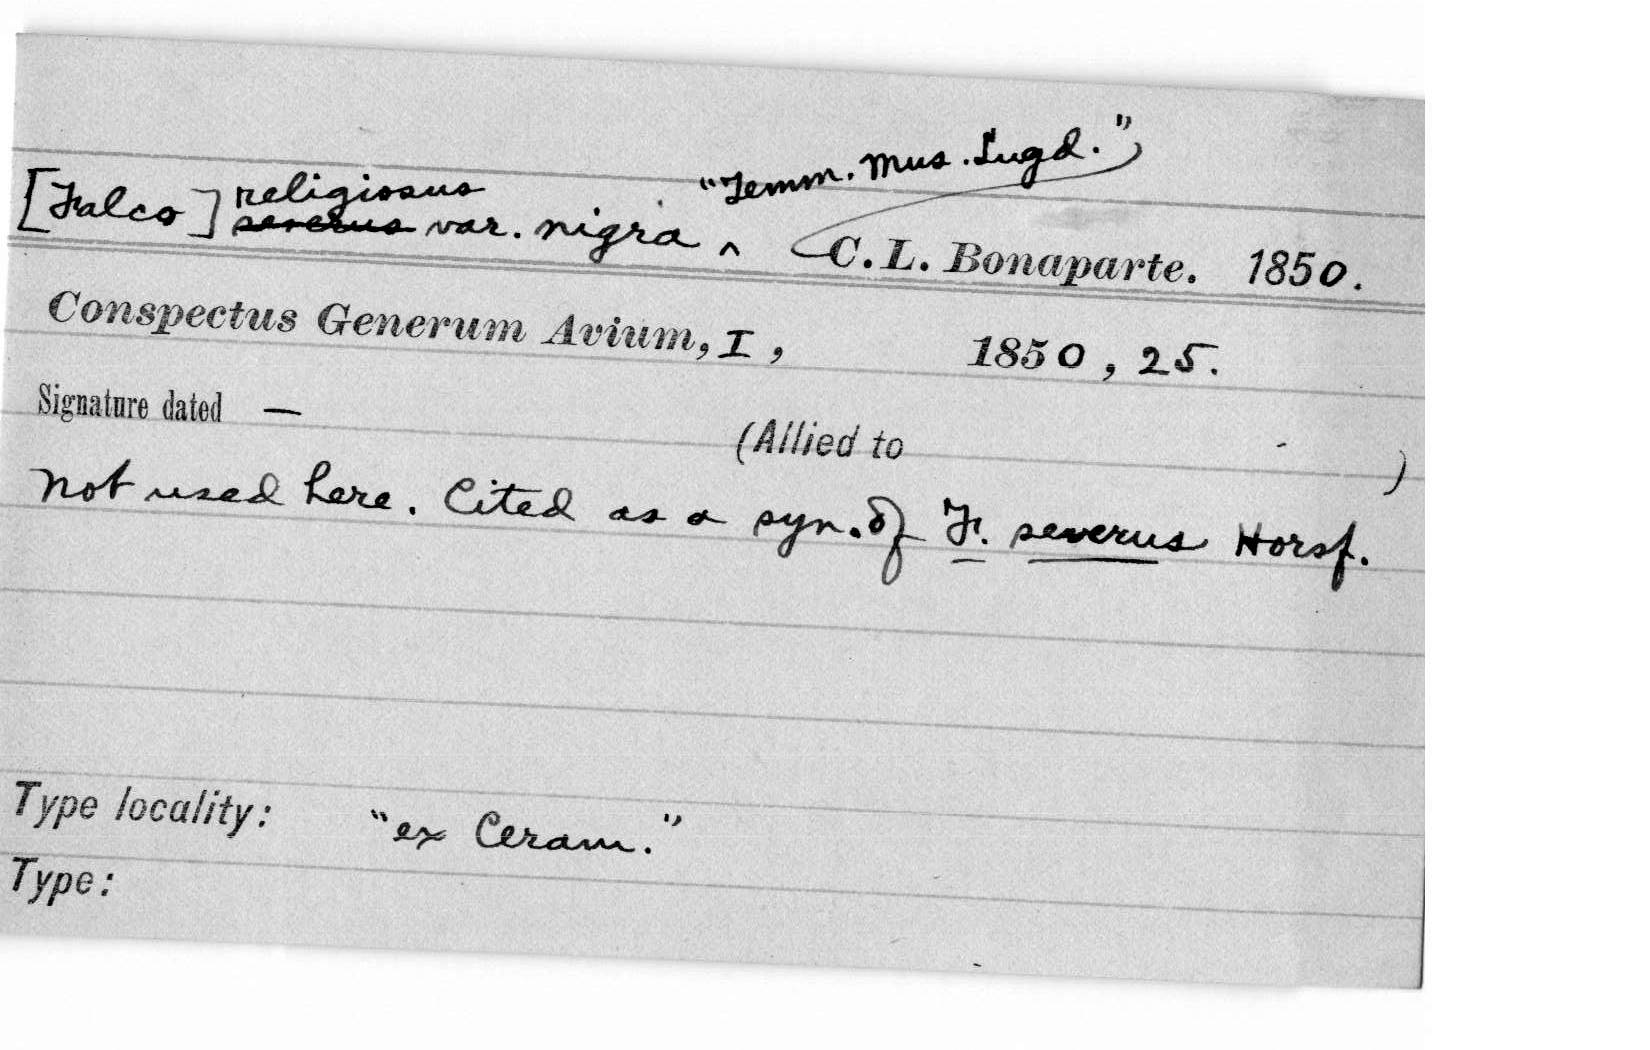 "Temm. Mus. Lugd."
religiosus
[Falco] severus var. nigra ^ C. L. Bonaparte. 1850.
Conspectus Generum Avium, I, 1850, 25.
Signature dated —
(Allied to - )
Not used here. Cited as a syn. of F. severus Horsf.
Type locality: "ex Ceram."
Type: